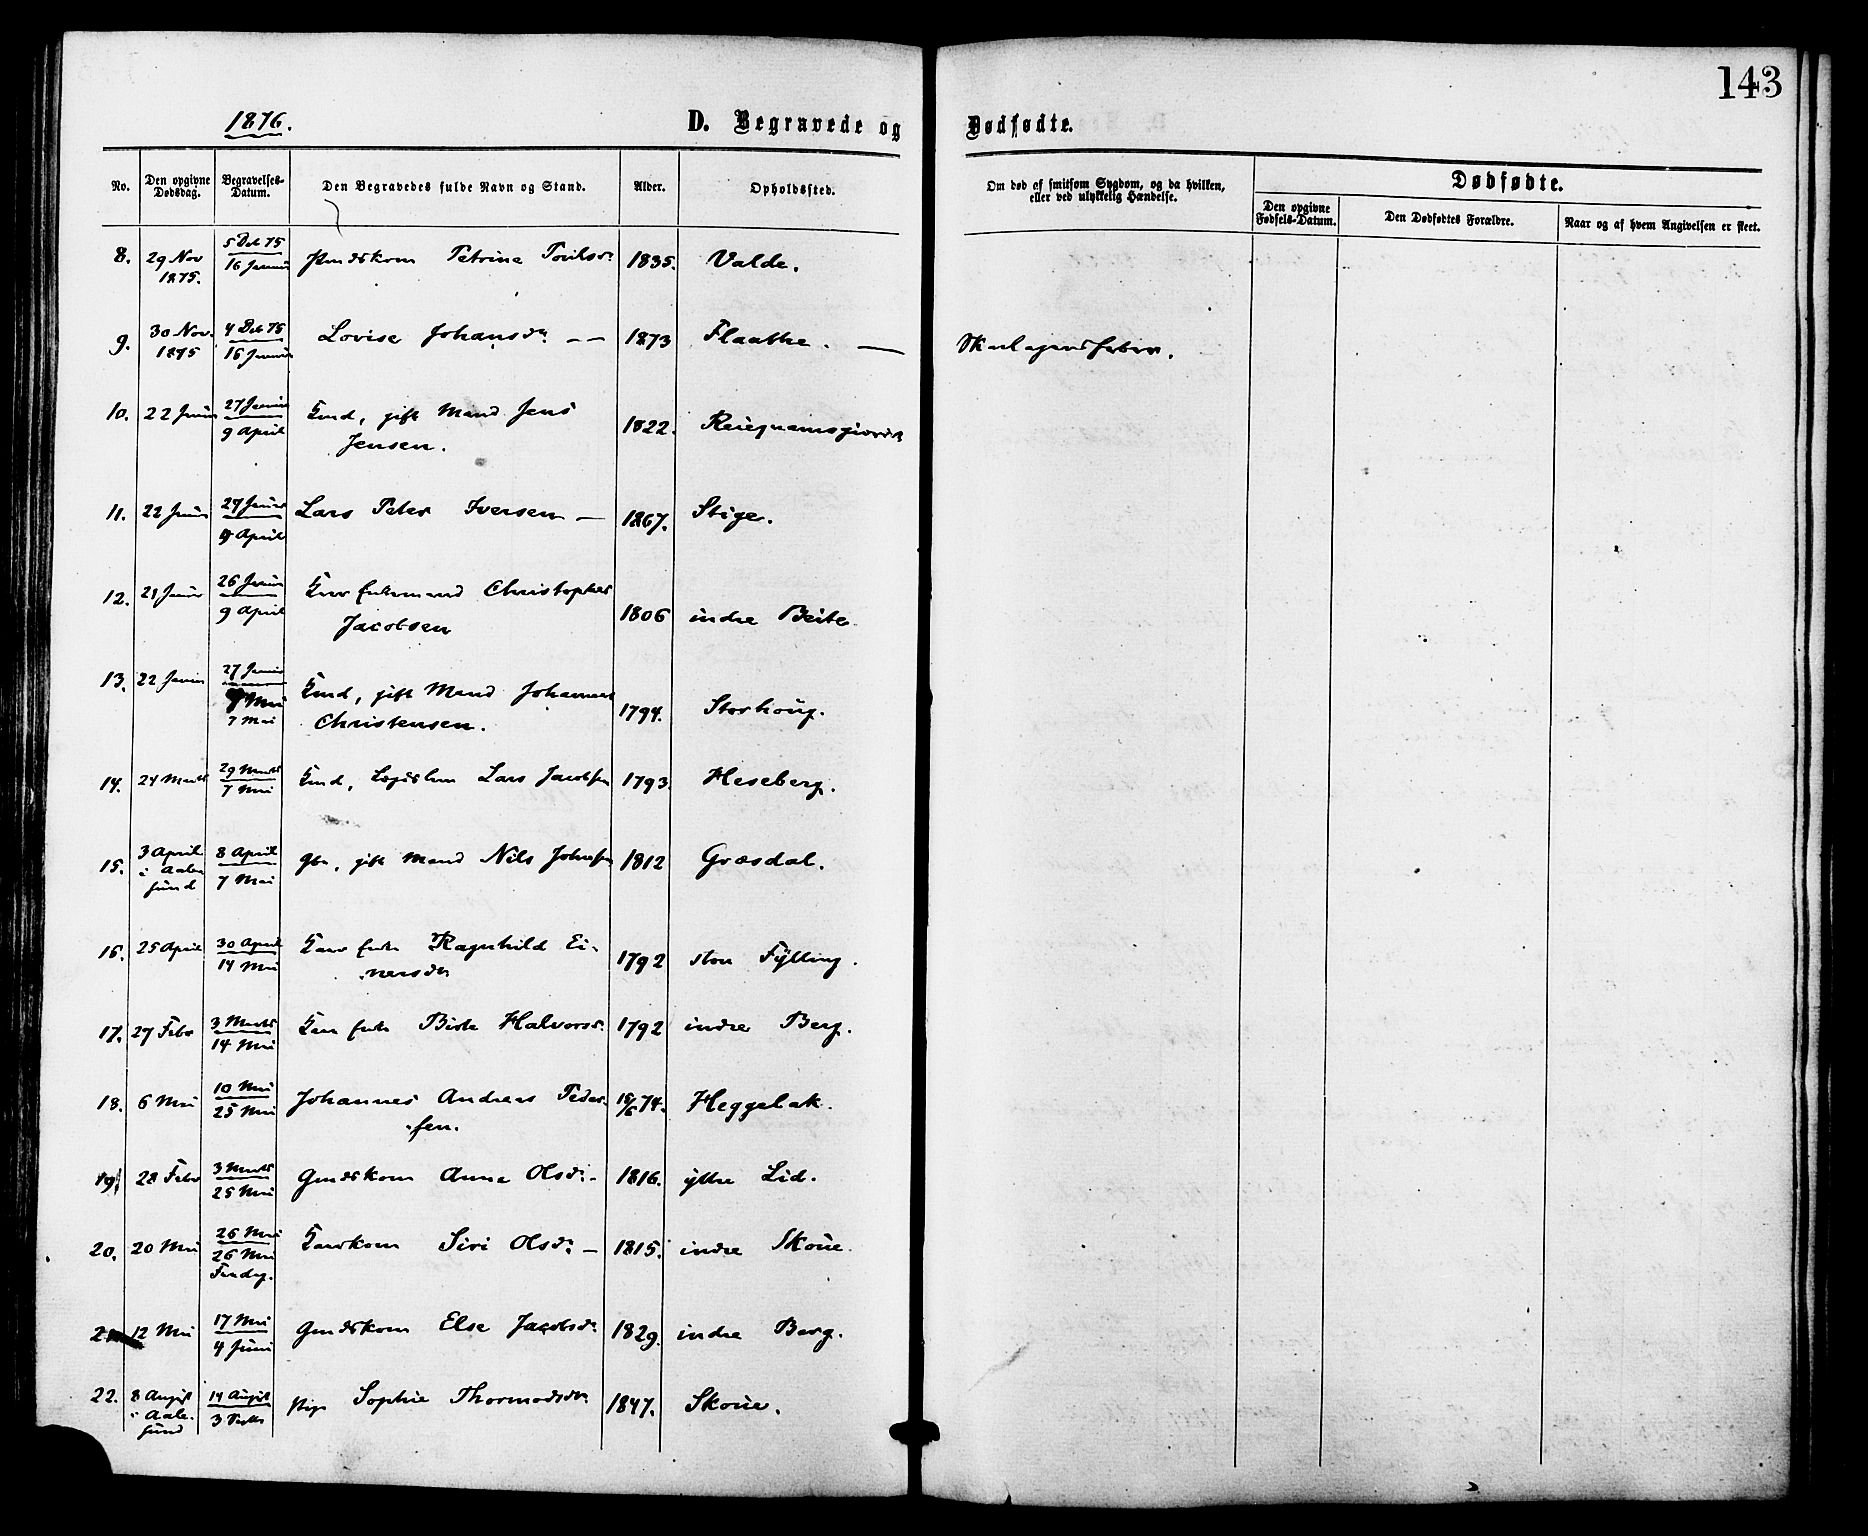 143
1876.
D. Begravede og Dødfødte.
No.
Den opgivne Dødsdag.
Begravelses-Datum.
Den Begravedes fulde Navn og Stand.
Alder.
Opholdssted.
Om død af smitsom Sygdom, og da hvilken, eller ved ulykkelig Hændelse.
Dødfødte.
Den opgivne Fødsels-Datum.
Den Dødfødtes Forældre.
Naar og af hvem Angivelsen er skeet.
8. 29 Nov 1875. 5 Dec 75 16 Petrine 1835. Valde.
9. 30 Nov. 1875 4 Dec 75 16 Lovise Johansdr — — 1873 Flaathe. — Skarlagensfeber.
10. 22 27 9 April Gmd, gift Mand Jens
Jensen. 1822.
11. 22 27 9 April Lars Peter Iversen — 1867. Stige.
12. 21 26 9 April Christopher
Jacobsen 1806 indre Beite
13. 22 27 7 Mai 7 Mai Gmd, gift Mand Johannes
Christensen. 1794. Storhoug.
14. 24 Marts 29 Marts 7 Mai Gmd, Lars Jacobsen 1793. Heseberg.
15. 3 April i Aalesund 8 April 7 Mai gbr, gift Mand Nils Johnsen 1812 Græsdal.
16. 25 April 30 April 14 Mai Ragnhild Ei-
nersdr 1792 store Fylling.
17. 27 Febr 3 Marts 14 Mai Halvorsdr 1792 indre Berg.
18. 6 Mai 10 Mai 25 Mai Johannes Andreas Peder-
sen. 74. Heggebak.
19. 28 Febr 3 Marts 25 Mai Gmdskone Anne Olsdr 1816. ytre Lid.
20. 20 Mai 26 Mai 26 Mai Siri Olsdr — 1815. indre Skoue.
21 12 Mai 17 Mai 4 Juni Gmdskone Else Jacobsdr 1829. indre Berg.
22. 8 August i Aalesund 14 August 3 Septbr Pige Sophie Thormodsdr 1847. Skoue.